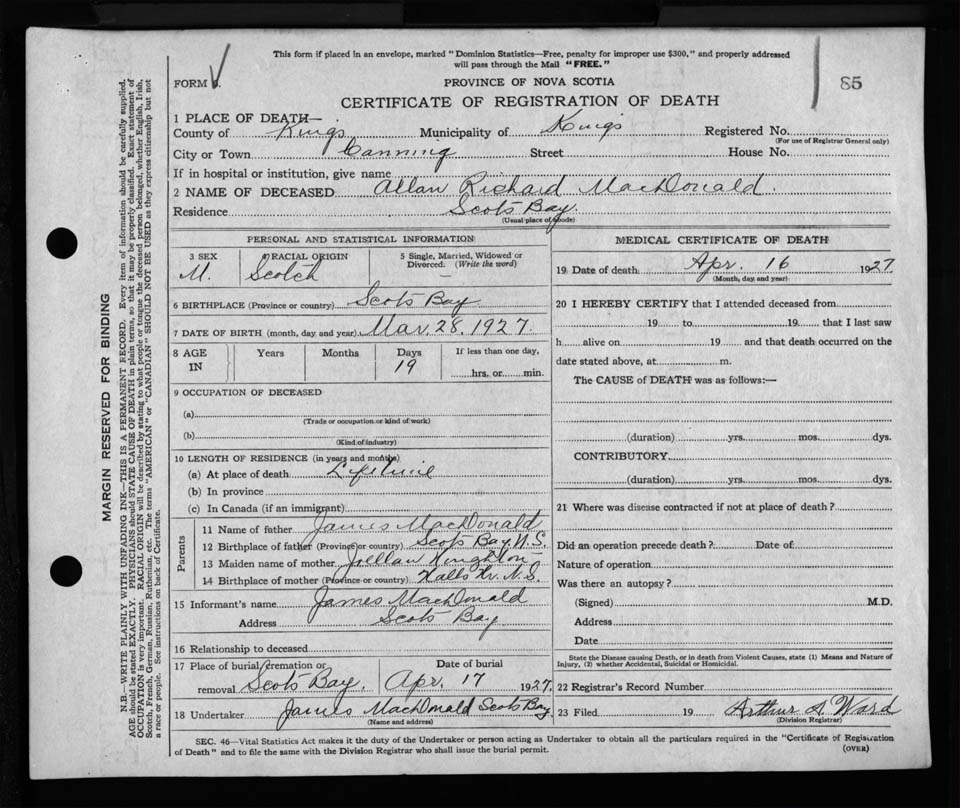 This form if placed in an envelope, marked "Dominion Statistics—Free, penalty for improper use $300," and properly addressed
will pass through the Mail "FREE."
FORM
PROVINCE OF NOVA SCOTIA
85
CERTIFICATE OF REGISTRATION OF DEATH
1 PLACE OF DEATH—
County of Kings Municipality of Kings Registered No.
(For use of Registrar General only)
City or Town Canning Street House No.
If in hospital or institution, give name
2 NAME OF DECEASED Allan Richard MacDonald
Residence Scots Bay
(Usual place of abode)
PERSONAL AND STATISTICAL INFORMATION
3 SEX RACIAL ORIGIN 5 Single, Married, Widowed or
Divorced. (Write the word)
M. Scotch
6 BIRTHPLACE (Province or country) Scots Bay
7 DATE OF BIRTH (month, day and year) Mar. 28, 1927
8 AGE IN Years Months Days If less than one day,
19 hrs. or min.
9 OCCUPATION OF DECEASED
(a)
(Trade or occupation or kind of work)
(b)
(Kind of industry)
10 LENGTH OF RESIDENCE (in years and months)
(a) At place of death Lifetime
(b) In province
(c) In Canada (if an immigrant)
Parents
11 Name of father James MacDonald
12 Birthplace of father (Province or country) Scots Bay, N.S.
13 Maiden name of mother
14 Birthplace of mother (Province or country) Halls Hr. N.S.
15 Informant's name James MacDonald
Address Scots Bay
16 Relationship to deceased
17 Place of burial, cremation or Date of burial
removal Scots Bay, Apr. 17 1927
18 Undertaker James MacDonald Scots Bay
(Name and address)
MEDICAL CERTIFICATE OF DEATH
19 Date of death Apr. 16 1927.
(Month, day and year)
20 I HEREBY CERTIFY that I attended deceased from
19 to 19 that I last saw
h alive on 19 and that death occurred on the
date stated above, at m.
The CAUSE of DEATH was as follows:—
(duration) yrs. mos. dys.
CONTRIBUTORY
(duration) yrs. mos. dys.
21 Where was disease contracted if not at place of death?
Did an operation precede death? Date of
Nature of operation
Was there an autopsy?
(Signed) M.D.
Address
Date
State the Disease causing Death, or in death from Violent Causes, state (1) Means and Nature of
Injury, (2) whether Accidental, Suicidal or Homicidal.
22 Registrar's Record Number
23 Filed 19 Arthur S. Ward
(Division Registrar)
SEC. 46—Vital Statistics Act makes it the duty of the Undertaker or person acting as Undertaker to obtain all the particulars required in the "Certificate of Registration
of Death" and to file the same with the Division Registrar who shall issue the burial permit.
(OVER)
MARGIN RESERVED FOR BINDING
N.B.—WRITE PLAINLY WITH UNFADING INK—THIS IS A PERMANENT RECORD. Every item of information should be carefully supplied.
AGE should be stated EXACTLY. PHYSICIANS should STATE CAUSE OF DEATH in plain terms, so that it may be properly classified. Exact statement of
OCCUPATION is very important. RACIAL ORIGIN will be described by stating to what people or tongue the deceased person belonged, whether English, Irish,
Scotch, French, German, Russian, Ruthenian, etc. The terms "AMERICAN" or "CANADIAN" SHOULD NOT BE USED as they express citizenship but not
a race or people. See instructions on back of Certificate.